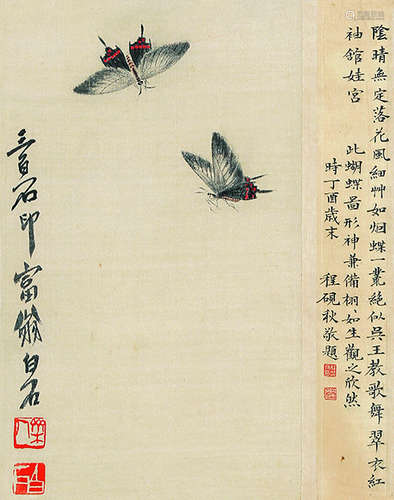 陰晴無定落花風細艸如烟蝶一叢絕似吳王教歌舞翠衣紅
袖館娃宮
此蝴蝶圖形神兼備栩如生觀之欣然
時丁酉歲末
程硯秋敬題
三百石印富翁白石